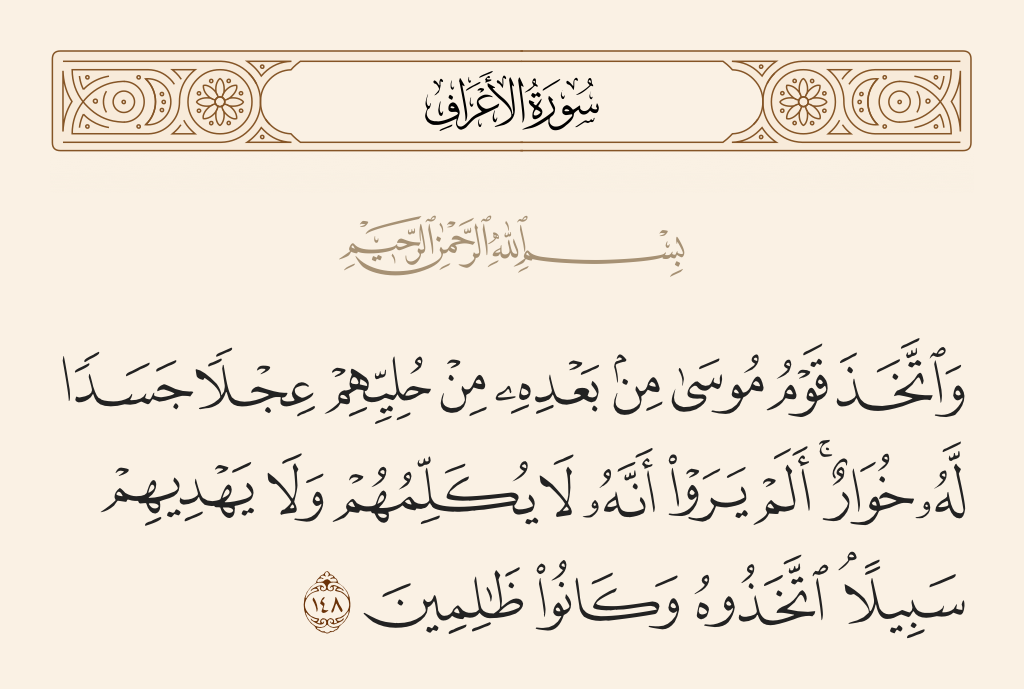 سُورَةُ الأَعْرَافِ
بِسْمِ ٱللَّهِ ٱلرَّحْمَٰنِ ٱلرَّحِيمِ
وَٱتَّخَذَ قَوْمُ مُوسَىٰ مِنۢ بَعْدِهِۦ مِنْ حُلِيِّهِمْ عِجْلًا جَسَدًا
لَّهُۥ خُوَارٌ ۚ أَلَمْ يَرَوْا۟ أَنَّهُۥ لَا يُكَلِّمُهُمْ وَلَا يَهْدِيهِمْ
سَبِيلًا ۘ ٱتَّخَذُوهُ وَكَانُوا۟ ظَٰلِمِينَ ١٤٨